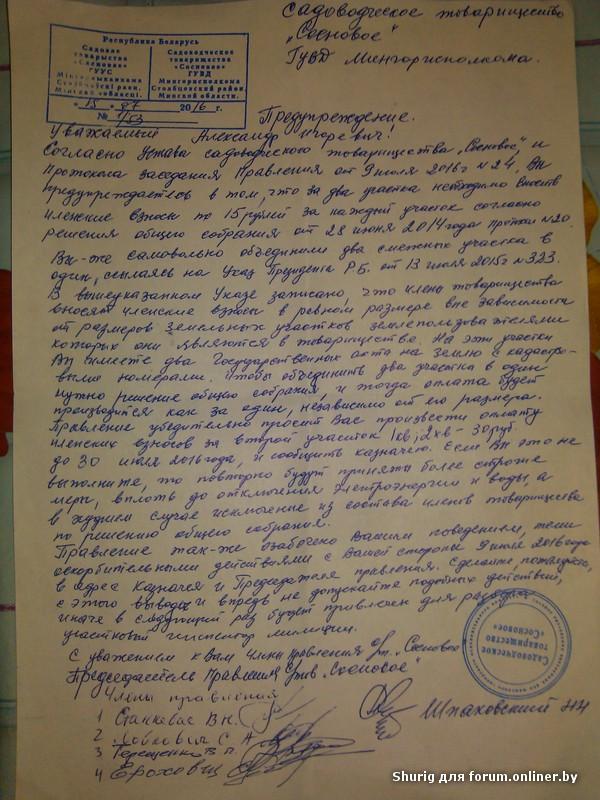 Садоводческое товарищество
„Сосновое"
ГУВД Мингорисполкома.
Рэспубліка Беларусь
Садовае таварыства «Сасновае» ГУУС
Садоводческое товарищество «Сосновое» ГУВД Мингорисполкома Столбцовский район, Минской области.
" 15 " 07 2016 г.
№ 1/53
Предупреждение.
Уважаемый Александр Игоревич!
Согласно Устава садоводческого товарищества „Сосновое", и
Протокола заседания Правления от 9 июля 2016г N 24, Вы
предупреждаетесь в том, что за два участка необходимо вносить
членские взносы по 15 рублей за каждый участок согласно
решения общего собрания от 28 июня 2014 года протокол N 20.
Вы-же самовольно объединили два смежных участка в
один, ссылаясь на Указ Президента Р.Б. от 13 июля 2015г N 323.
В вышеуказанном Указе записано, что члены товарищества
вносят членские взносы в равном размере вне зависимости
от размеров земельных участков землепользователями
которых они являются в товариществе. На эти участки
Вы имеете два Государственных акта на землю с кадастро-
выми номерами. Чтобы объединить два участка в один
нужно решение общего собрания, и тогда оплата будет
производится как за один, независимо от его размера.
Правление убедительно просит Вас произвести оплату
членских взносов за второй участок 1кв; 2кв - 30 руб.
до 30 июля 2016 года, и сообщить казначею. Если Вы это не
выполните, то повторно будут приняты более строгие
меры, вплоть до отключения электроэнергии и воды, а
в худшем случае исключение из состава членов товарищества
по решению общего собрания.
Правление так-же озабочено Вашим поведением, теми
оскорбительными действиями с Вашей стороны 9 июля 2016 года
в адрес Казначея и Председателя правления. Сделайте, пожалуйста,
с этого выводы и впредь не допускайте подобных действий,
иначе в следующий раз будет привлечен для разбора
участковый инспектор милиции.
С уважением к Вам члены правления „Сосновое"
Председатель Правления „Сосновое"
Члены правления
1 Станкевич В К.
2. С А
3 Терещенко В П.
4 Ерохович
Шпаковский
Садоводческое товарищество «Сосновое»
Shurig для forum.onliner.by